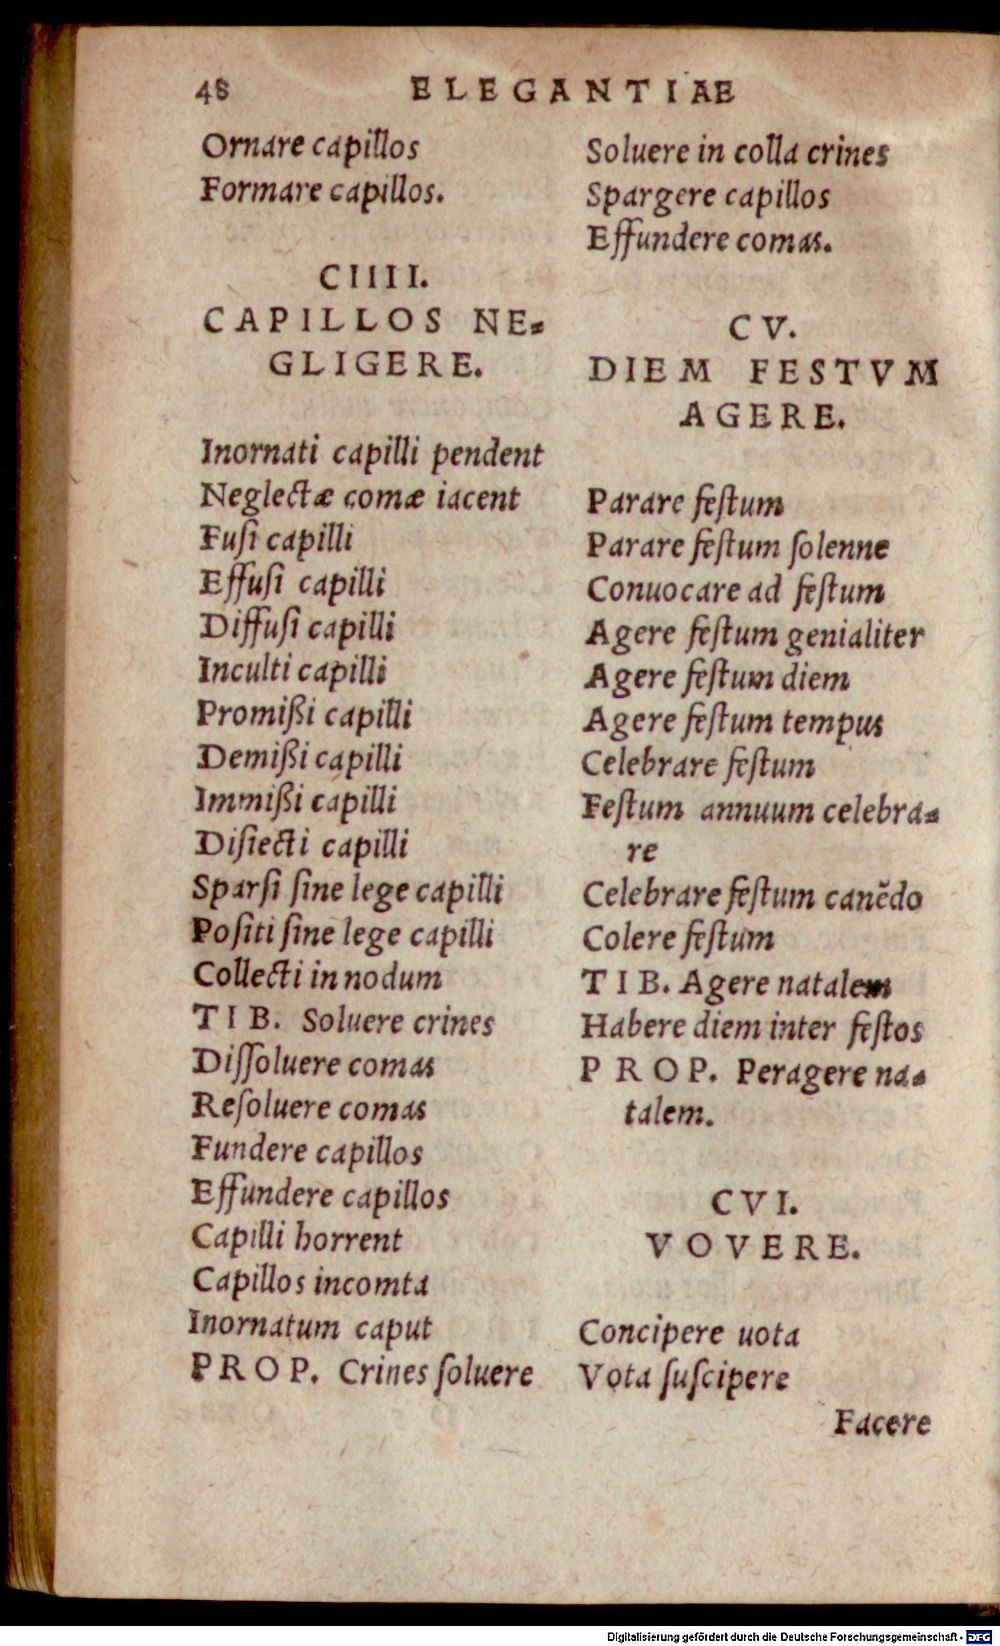 48 ELEGANTIAE
Ornare capillos
Formare capillos.
CIIII.
CAPILLOS NE-
GLIGERE.
Inornati capilli pendent
Neglectæ comæ iacent
Fuſi capilli
Effuſi capilli
Diffuſi capilli
Inculti capilli
Promißi capilli
Demißi capilli
Immißi capilli
Diſiecti capilli
Sparſi ſine lege capilli
Poſiti ſine lege capilli
Collecti in nodum
TIB. Soluere crines
Diſſoluere comas
Reſoluere comas
Fundere capillos
Effundere capillos
Capilli horrent
Capillos incomta
Inornatum caput
PROP. Crines ſoluere
Soluere in colla crines
Spargere capillos
Effundere comas.
CV.
DIEM FESTVM
AGERE.
Parare feſtum
Parare feſtum ſolenne
Conuocare ad feſtum
Agere feſtum genialiter
Agere feſtum diem
Agere feſtum tempus
Celebrare feſtum
Feſtum annuum celebra-
re
Celebrare feſtum canẽdo
Colere feſtum
TIB. Agere natalem
Habere diem inter feſtos
PROP. Peragere na-
talem.
CVI.
VOVERE.
Concipere uota
Vota ſuſcipere
Facere
Digitalisierung gefördert durch die Deutsche Forschungsgemeinschaft - DFG